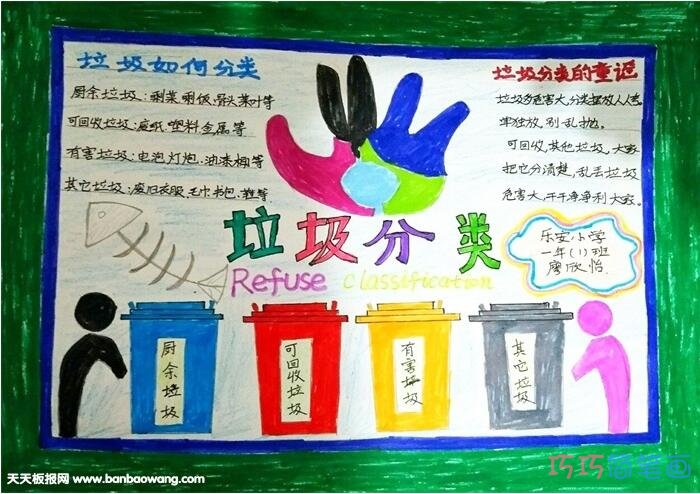 垃圾如何分类
厨余垃圾:剩菜剩饭、骨头菜叶等
可回收垃圾:废纸、塑料金属等
有害垃圾:电泡灯炮、油漆桶等
其它垃圾:废旧衣服、毛巾书包、鞋等.
垃圾分类的童谣
垃圾多危害大,分类摆放人人夸
单独放,别乱抛。
可回收,其他垃圾,大家
把它分清楚,乱丢垃圾
危害大,干干净净利大家。
垃圾分类
Refuse classification
乐安小学
一年(1)班
廖欣怡
厨余垃圾
可回收垃圾
有害垃圾
其它垃圾
天天板报网 www.banbaowang.com
巧巧简笔画